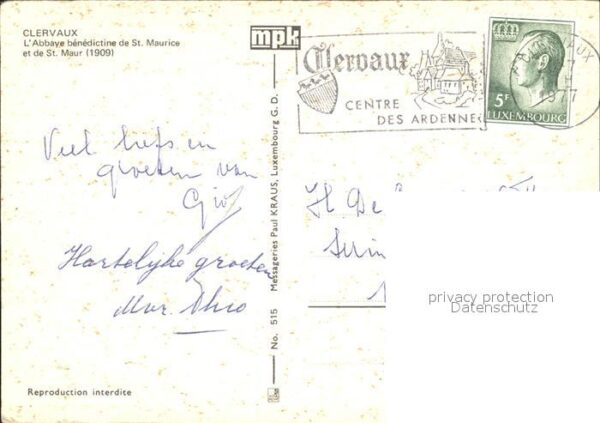 CLERVAUX
L'Abbaye bénédictine de St. Maurice
et de St. Maur (1909)
mpk
Clervaux
CENTRE
DES ARDENNES
5F
LUXEMBOURG
1977
Veel liefs en
groeten van
Hartelijke groeten
No. 515 Messageries Paul KRAUS, Luxembourg G. D.
De
privacy protection
Datenschutz
Reproduction interdite